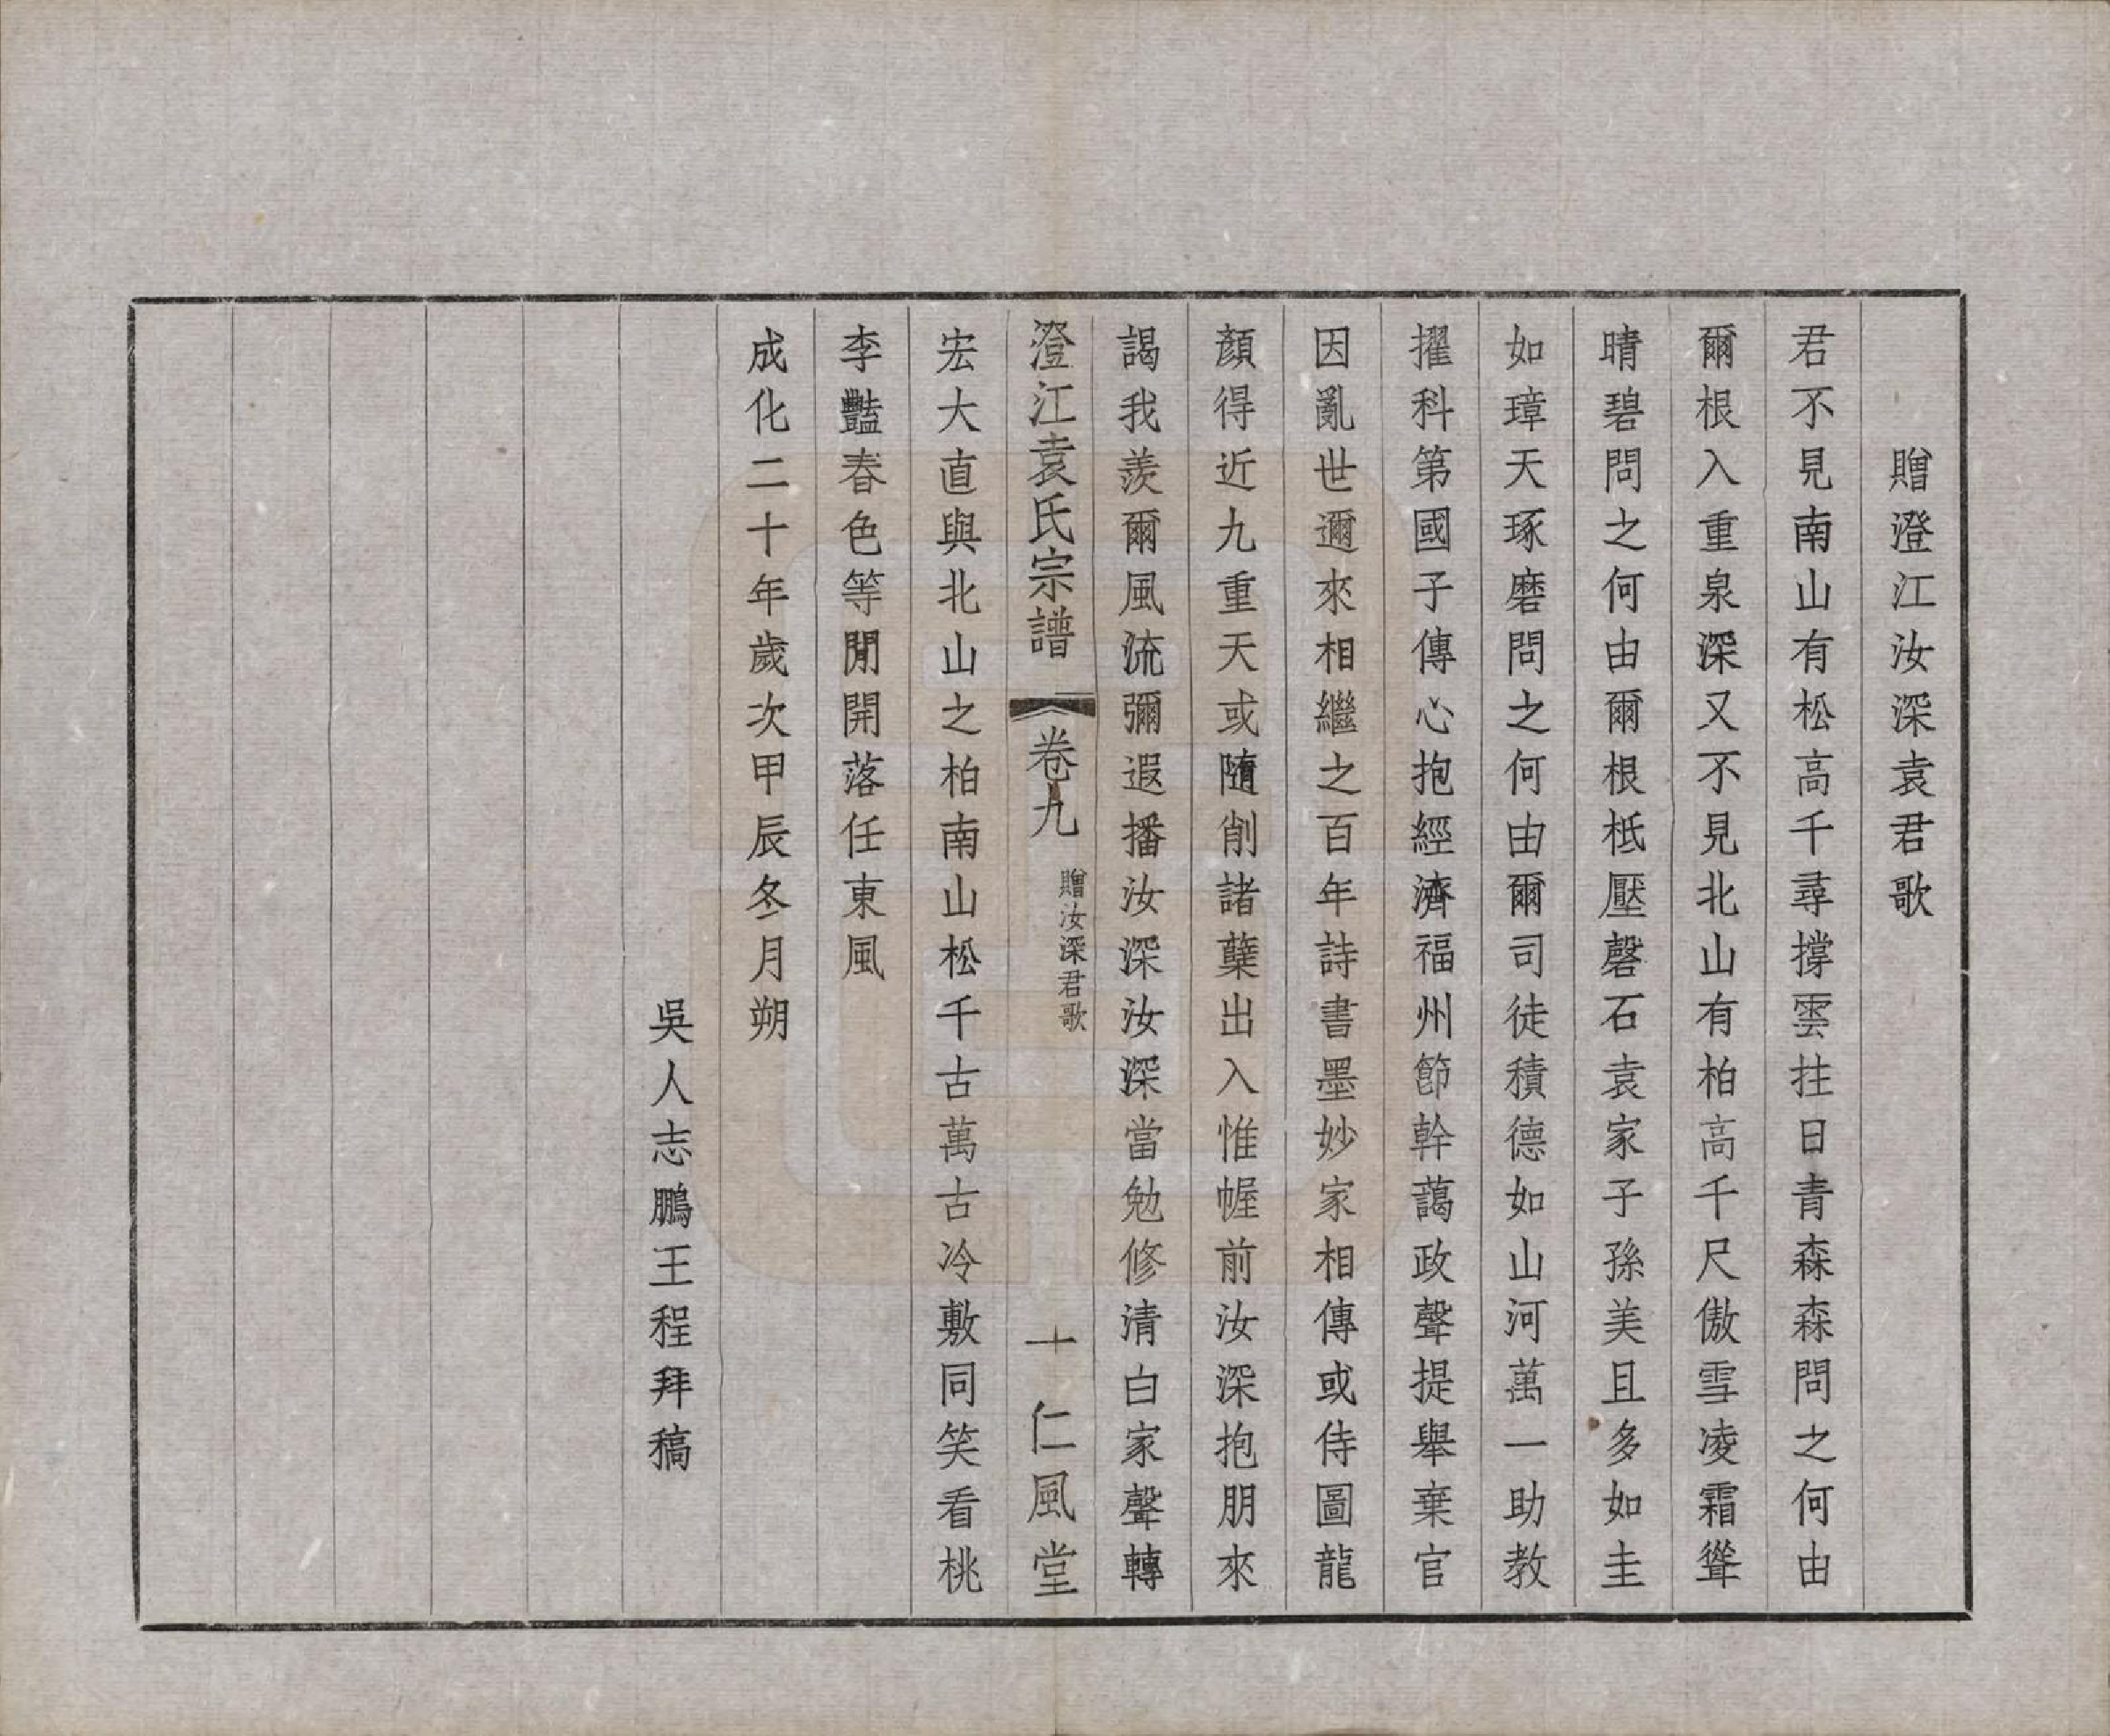 贈澄江汝深袁君歌
君不見南山有松高千尋撐雲拄日青森森問之何由
爾根入重泉深又不見北山有柏高千尺傲雪凌霜聳
晴碧問之何由爾根柢壓磬石袁家子孫美且多如圭
如璋天琢磨問之何由爾司徒積德如山河萬一助教
擢科第國子傳心抱經濟福州節幹藹政聲提舉棄官
因亂世邇來相繼之百年詩書墨妙家相傳或侍圖龍
顏得近九重天或隨削諸蘖出入惟幄前汝深抱朋來
謁我羨爾風流彌遐播汝深汝深當勉修清白家聲轉
澄江袁氏宗譜 卷九 贈汝深君歌 十 仁風堂
宏大直與北山之柏南山松千古萬古冷敷同笑看桃
李豔春色等閒開落任東風
成化二十年歲次甲辰冬月朔
吳人志鵬王程拜稿